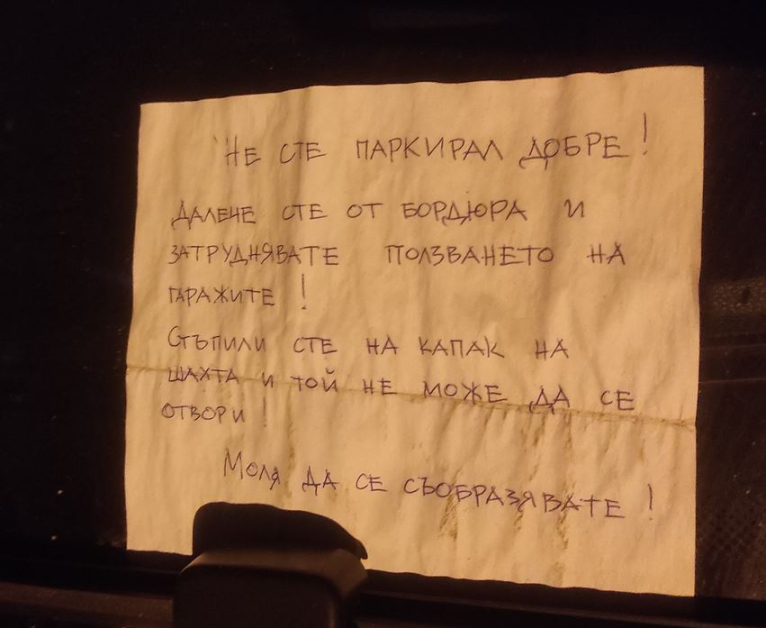 НЕ СТЕ ПАРКИРАЛ ДОБРЕ!
ДАЛЕЧЕ СТЕ ОТ БОРДЮРА И
ЗАТРУДНЯВАТЕ ПОЛЗВАНЕТО НА
ГАРАЖИТЕ!
СТЪПИЛИ СТЕ НА КАПАК НА
ШАХТА И ТОЙ НЕ МОЖЕ ДА СЕ
ОТВОРИ!
МОЛЯ ДА СЕ СЪОБРАЗЯВАТЕ!